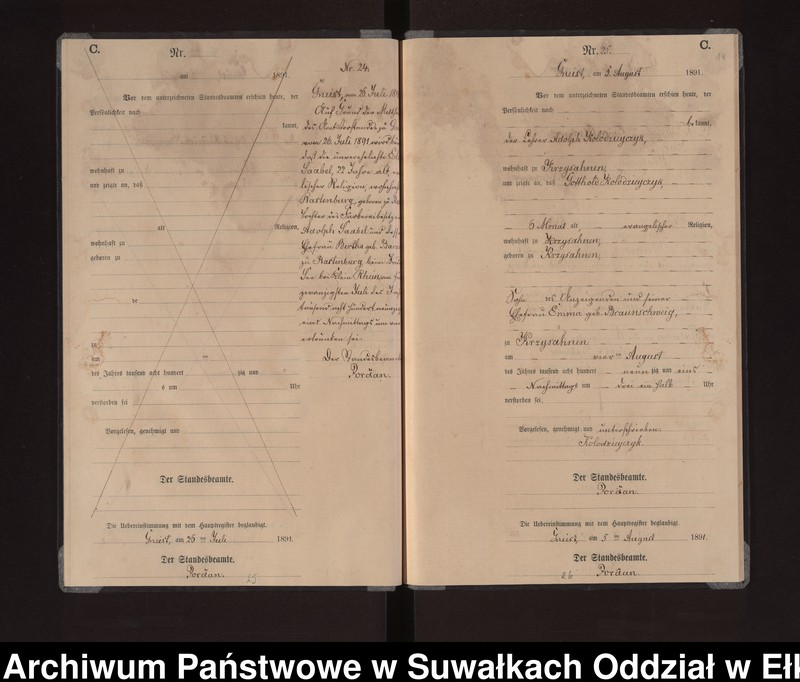 C.
Nr.
am 1891.
Vor dem unterzeichneten Standesbeamten erschien heute, der
Persönlichkeit nach
kannt,
wohnhaft zu
und zeigte an, daß
alt Religion,
wohnhaft zu
geboren zu
de
zu
am ten
des Jahres tausend acht hundert zig und
s um Uhr
verstorben sei
Vorgelesen, genehmigt und
Der Standesbeamte.
Die Uebereinstimmung mit dem Hauptregister beglaubigt.
Gneist, am 26 ten Juli 1891.
Der Standesbeamte.
Pordan.
25
Nr. 24.
Gneist, am 26. Juli 189
Auf Grund der
des Amtsvorstandes zu
vom 26. Juli 1891 wird
daß die unverehelichte
Saabel, 22 Jahre alt,
lischer Religion,
Rastenburg, geboren zu
Tochter des Färbereibesitzer
Adolph Saabel und
Ehefrau Bertha geb.
zu Rastenburg beim
See bei Klein Rhein am
zwanzigsten Juli des
tausend acht hundert
eins Nachmittags um
ertrunken sei.
Der Standesbeamte
Pordan.
C.
Nr. 25.
Gneist, am 5. August 1891.
Vor dem unterzeichneten Standesbeamten erschien heute, der
Persönlichkeit nach
be kannt,
der Lehrer Adolph Kolodzieyczyk,
wohnhaft zu Krzysahnen,
und zeigte an, daß Gotthold Kolodzieyczyk
6 Monat alt evangelischer Religion,
wohnhaft zu Krzysahnen,
geboren zu Krzysahnen,
Sohn des Anzeigenden und seiner
Ehefrau Emma geb. Braunschweig,
zu Krzysahnen
am vier ten August
des Jahres tausend acht hundert neun zig und eins
Nachmittags um drei ein halb Uhr
verstorben sei.
Vorgelesen, genehmigt und unterschrieben.
Kolodzieyczyk.
Der Standesbeamte.
Pordan.
Die Uebereinstimmung mit dem Hauptregister beglaubigt.
Gneist, am 5 ten August 1891.
Der Standesbeamte.
26 Pordan.
Archiwum Państwowe w Suwałkach Oddział w Ełk